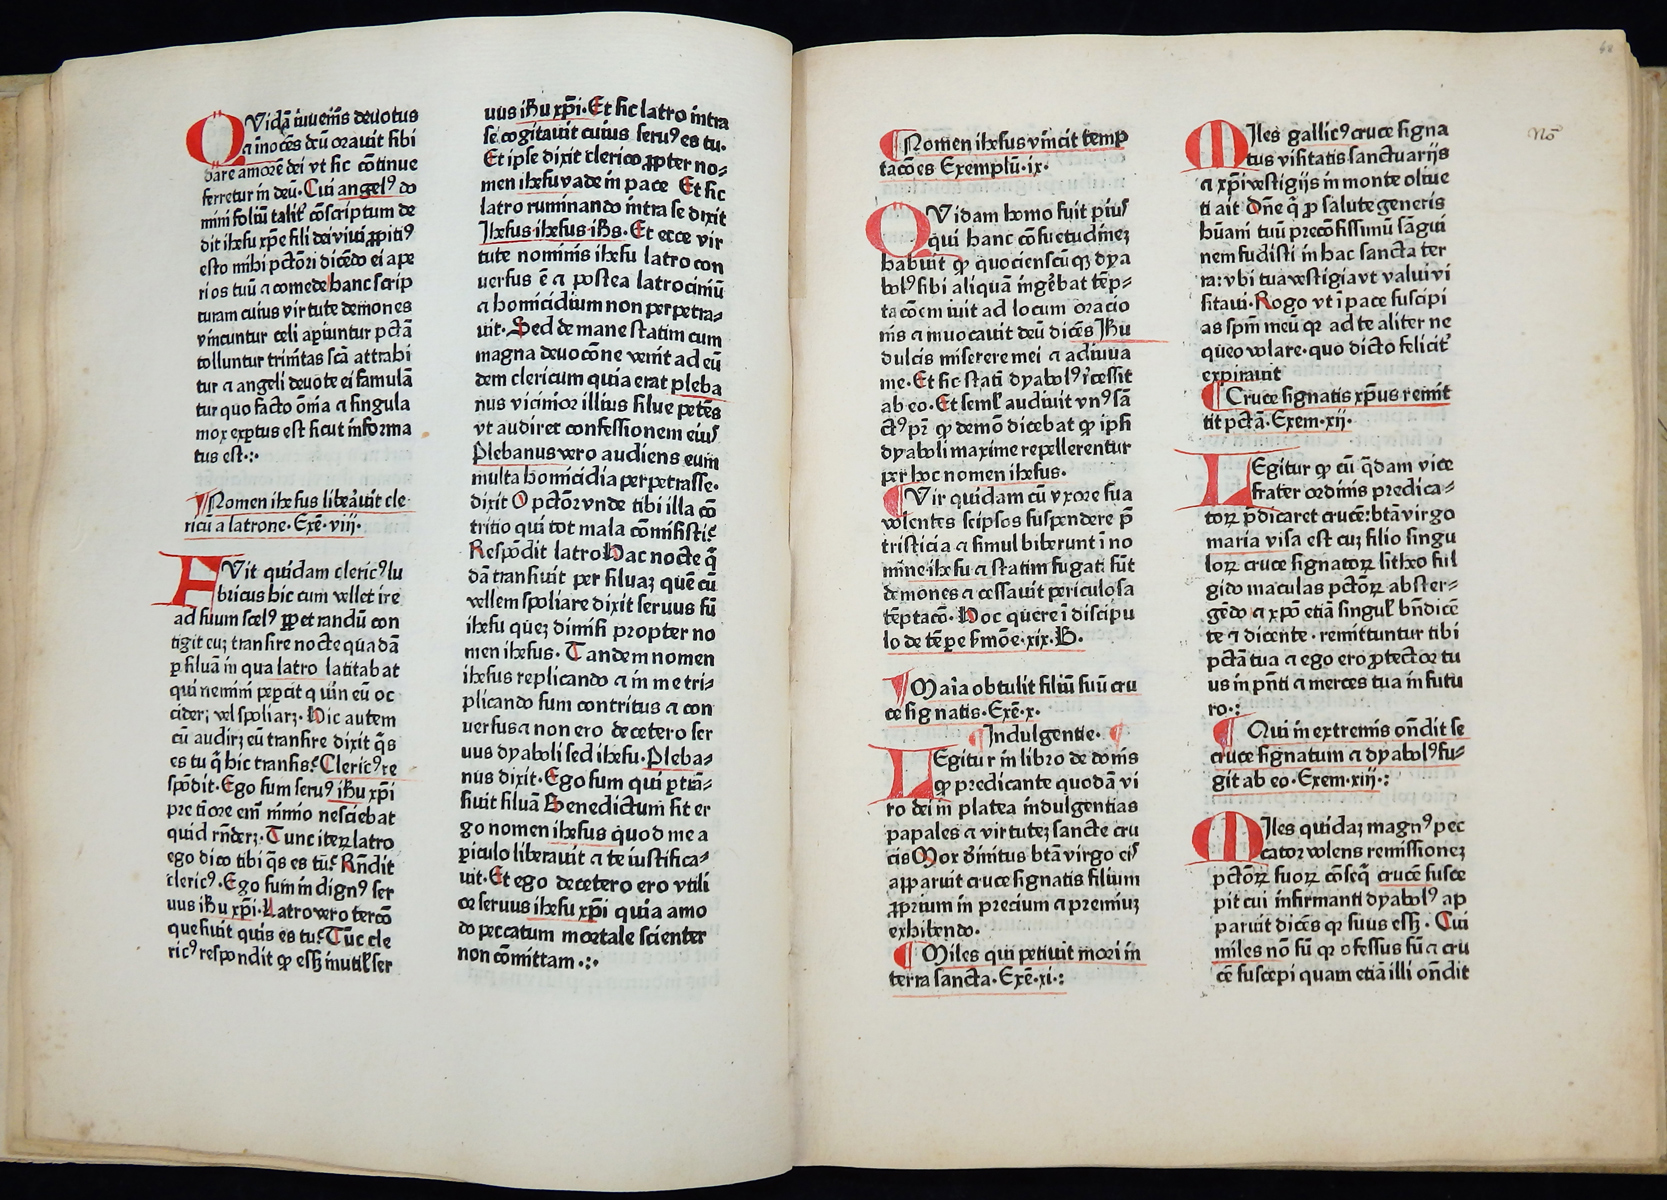 QVidā iuuenis deuotus
a ī̄nocēs deū orauit sibi
dare amorē dei vt sic cōtinue
ferretur in deū. Cui angelꝰ do
mini foliū talit᷑ cōscriptum de
dit ihesu xpē fili dei viui ꝓpitiꝰ
esto mihi pctōri dicēdo ei ape
ri os tuū a comede hanc scrip
turam cuius virtute demones
vincuntur celi apiuntur pctā
tolluntur trinitas scā attrahi
tur a angeli deuote ei famulā
tur quo facto ōmia a singula
mox exptus est sicut informa
tus est.:.
¶Nomen ihesus libeauit cle
ricū a latrone. Exē. viij.
FVit quidam clericꝰ lu
bricus hic cum vellet ire
ad suum scelꝰ ꝑpetrandū con
tigit euꝫ transire nocte quadā
ꝑ siluā in qua latro latitabat
qui nemini pepcit q uin eū oc
cider; vel spoliarꝫ. Hic autem
cū audirꝫ eū transire dixit q̄s
es tu q̄ hic transis? Clericꝰ re
spōdit. Ego sum seruꝰ ihu xp̄i
pre tiōre em̄ nimio nesciebat
quid rn̄derꝫ. Tunc iteꝝ latro
ego dico tibi q̄s es tu? Rn̄dit
clericꝰ. Ego sum in dignꝰ ser
uus ihu xp̄i. Latro vero tercō
quesiuit quis es tu? Tūc cle
ricꝰ respondit ꝙ essꝫ inutil᷑ ser
uus ihu xp̄i. Et sic latro intra
se cogitauit cuius seruꝰ es tu.
Et ipse dixit clerico ꝓpter no=
men ihesu vade in pace Et sic
latro ruminando intra se dixit
Jhesus. ihesus. ihs. Et ecce vir
tute nominis ihesu latro con
uersus ē a postea latrociniū
a homicidium non perpetra=
uit. Sed de mane statim cum
magna deuocōne venit ad eū
dem clericum quia erat pleba
nus vicinior illius silue petēs
vt audiret confessionem eius
Plebanus vero audiens eum
multa homicidia perpetrasse.
dixit O pctōr vnde tibi illa cō
tritio qui tot mala cōmisisti?
Respōdit latro Hac nocte q̄
dā transiuit per siluaꝫ quē cū
vellem spoliare dixit seruus sū
ihesu queꝫ dimisi propter no
men ihesus. Tandem nomen
ihesus replicando a in me tri=
plicando sum contritus a con
uersus a non ero decetero ser
uus dyaboli sed ihesu. Pleba=
nus dixit. Ego sum qui ꝑtrā=
siuit siluā Benedictum sit er
go nomen ihesus quod me a
ꝑiculo liberauit a te iustifica=
uit. Et ego decetero ero vtili
or seruus ihesu xp̄i quia amo
do peccatum mortale scienter
non cōmittam.:.
¶Nomen ihesus vincit temp
tacōes Exemplū. ix.
QVidam homo fuit pius
qui hanc cōsuetudineꝫ
habuit ꝙ quocienscūqꝫ dya
bolꝰ sibi aliquā ingēbat tēp=
tacōem iuit ad locum oracio
nis a inuocauit deū dicēs Jhu
dulcis miserere mei a adiuua
me. Et sic stati dyabolꝰ rcessit
ab eo. Et seml᷑ audiuit vnꝰ sā
ctꝰ pr̄ ꝙ demō dicebat ꝙ ipsi
dyaboli maxime repellerentur
per hoc nomen ihesus.
¶Vir quidam cū vxore sua
volentes seipsos suspendere p̄
tristicia a simul biberunt ī no
mine ihesu a statim fugati sūt
demones a cessauit periculosa
tēptacō. Hoc quere ī discipu
lo de tēpe smōe. xix. B.
¶Maia obtulit filiū suū cru
ce signatis. Exē. x.
¶Indulgentie. ¶
LEgitur in libro de donis
ꝙ predicante quodā vi
ro dei in platea indulgentias
papales a virtuteꝫ sancte cru
cis Mox dīnitus btā virgo eiꝰ
apparuit cruce signatis filium
ꝓprium in precium a premiuꝫ
exhibendo.
¶Miles qui petiuit mori in
terra sancta. Exē. xi.:
MIles gallicꝰ cruce signa
tus visitatis sanctuarijs
a xpi vestigijs in monte oliue
ti ait Dn̄e q̄ ꝓ salute generis
hūani tuū preciosissimū sāgui
nem fudisti in hac sancta ter
ra: vbi tua vestigia vt valui vi
sitaui. Rogo vt ī pace suscipi
as spm̄ meū qꝛ ad te aliter ne
queo volare. quo dicto felicit᷑
expirauit
¶Cruce signatis xpūs remit
tit pctā. Exem. xij.
LEgitur ꝙ cū q̄dam vice
frater ordinis predica=
toꝝ p̄dicaret crucē: btā virgo
maria visa est cuꝫ filio singu
loꝝ cruce signatoꝝ lītheo ful
gido maculas pctōꝝ abster=
gēdo a xpō etiā singul᷑ bn̄dicē
te ⁊ dicente. remittuntur tibi
pctā tua a ego ero ꝓtector tu
us in pn̄ti a merces tua in futu
ro.:
¶Qui in extremis on̄dit se
cruce signatum a dyabolꝰ fu=
git ab eo. Exem. xiij.:
MIles quidaꝫ magnꝰ pec
cator volens remissioneꝫ
pctōꝝ suoꝝ cōseq̄ crucē susce
pit cui infirmanti dyabolꝰ ap
paruit dicēs qꝛ suus essꝫ. Cui
miles nō sū qꝛ ꝯfessus sū a cru
cē suscepi quam etiā illi on̄dit
Nō